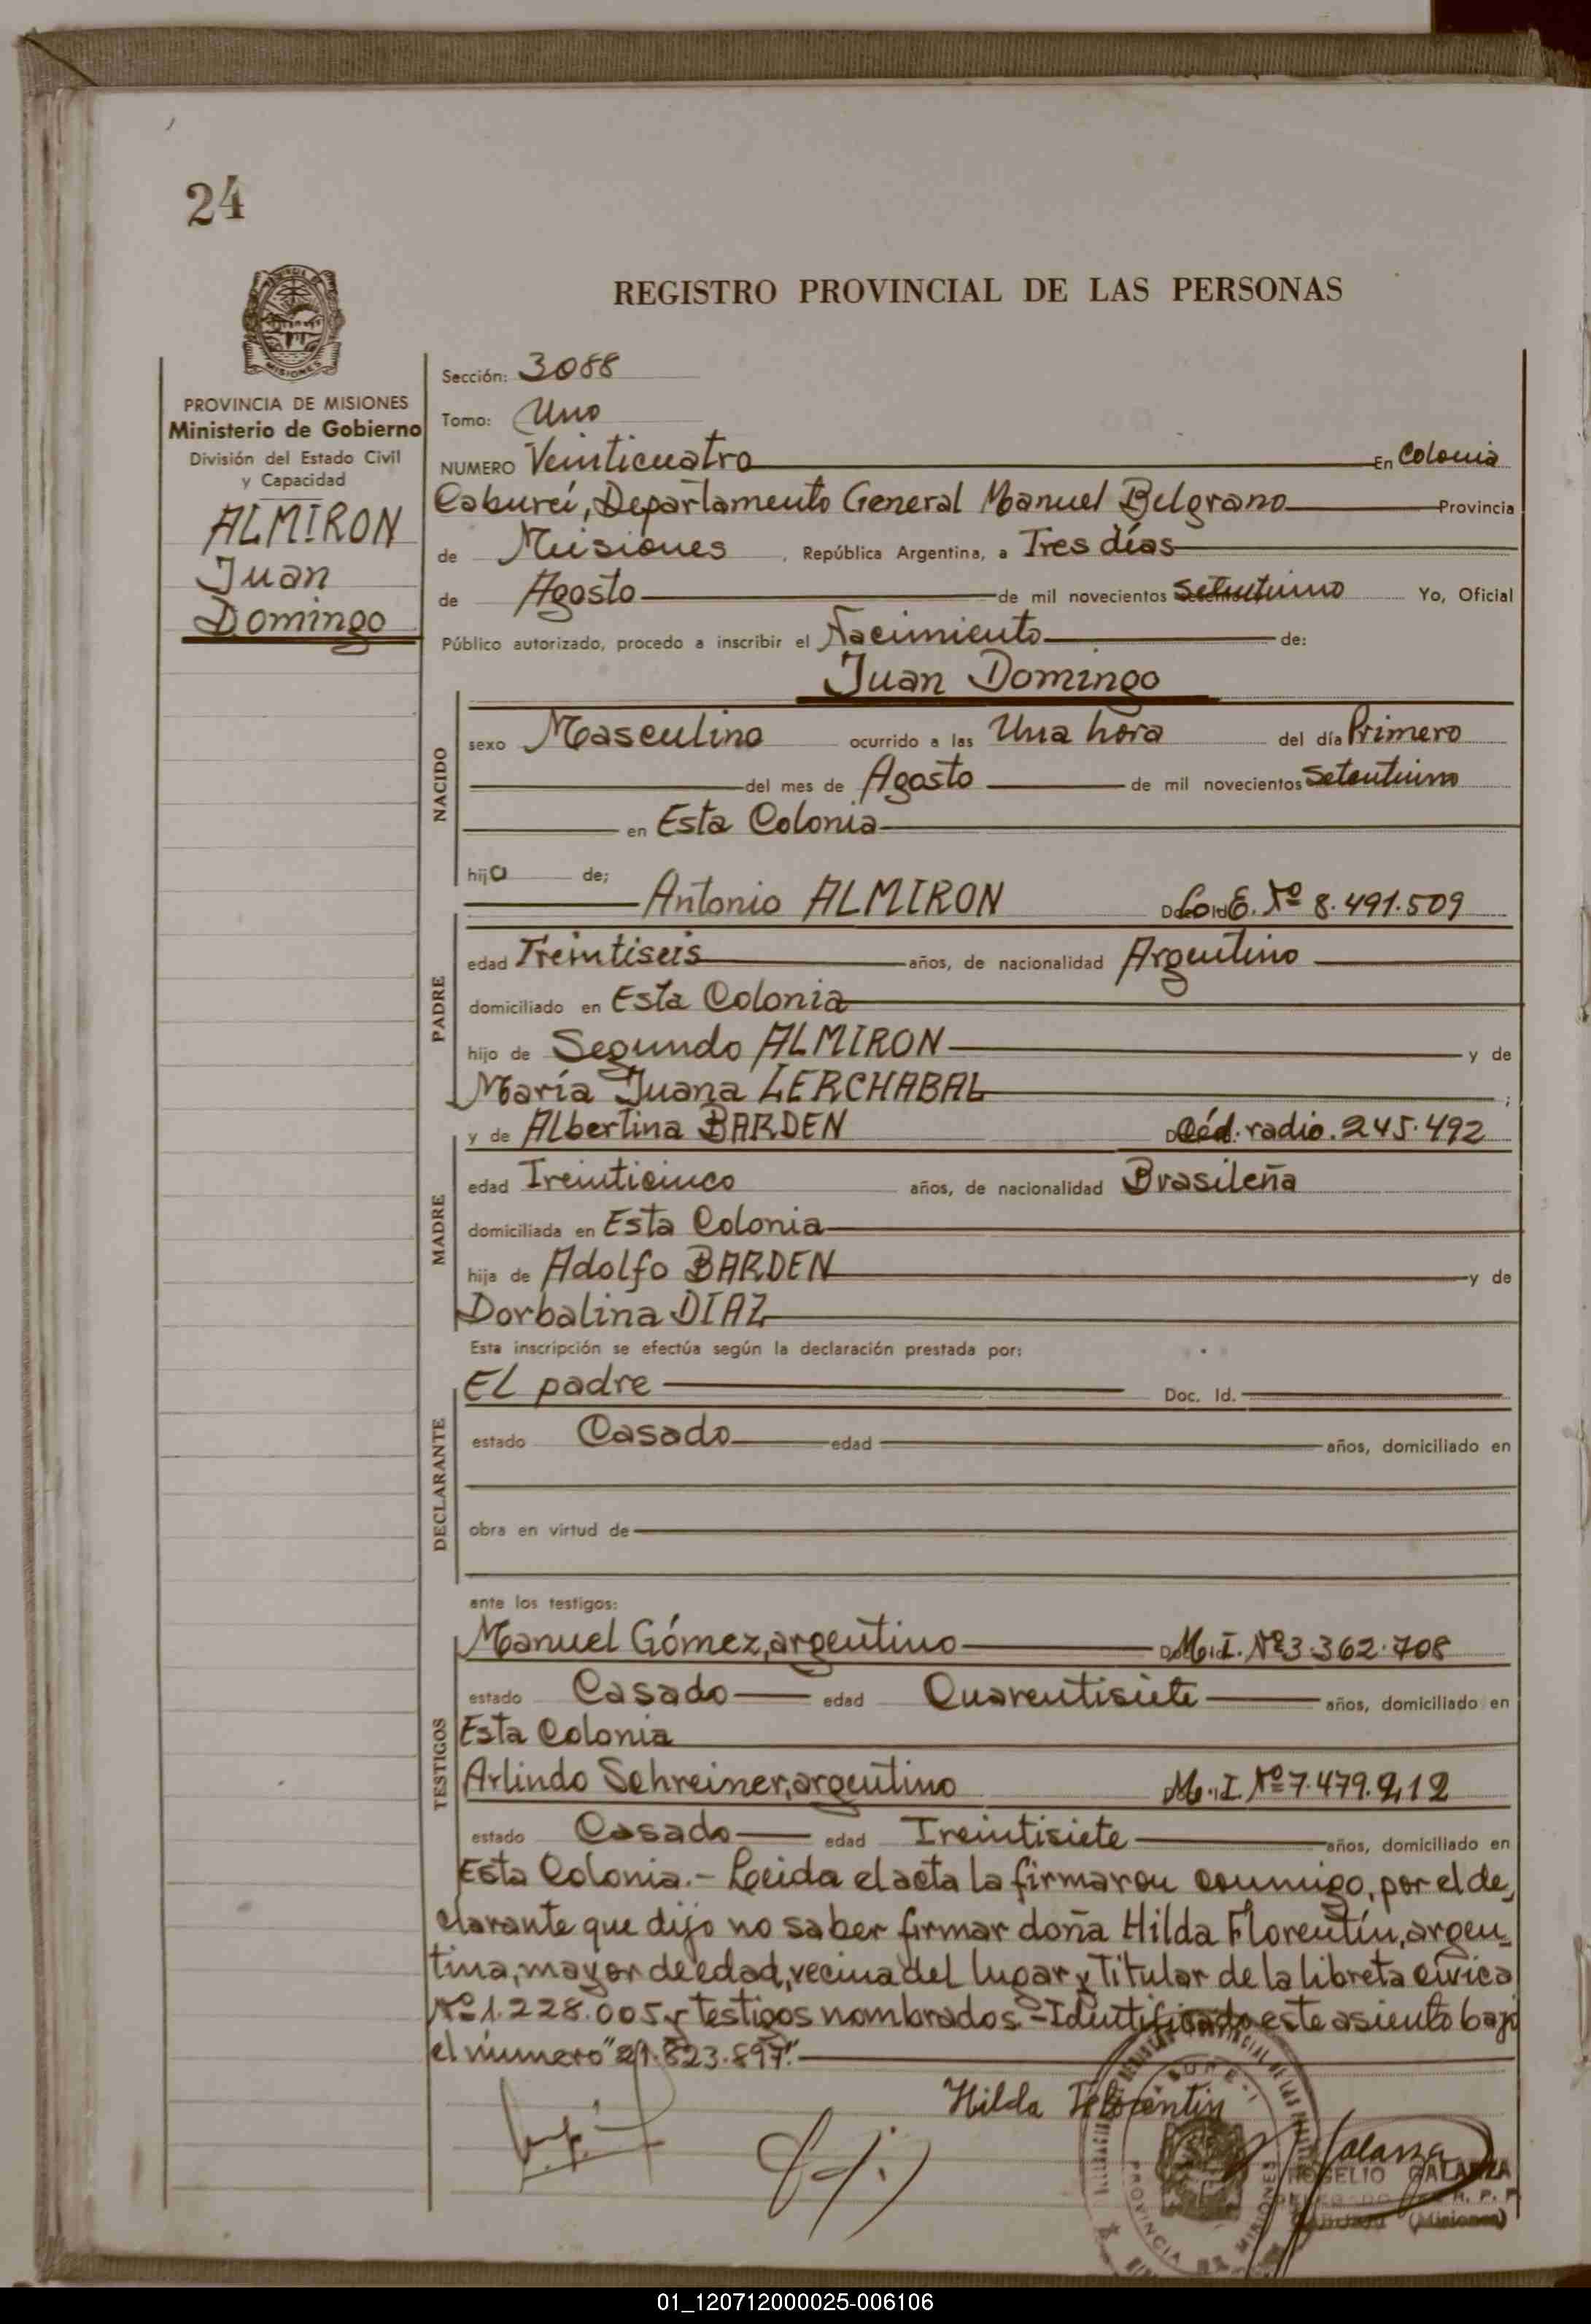 24
REGISTRO PROVINCIAL DE LAS PERSONAS
MISIONES
PROVINCIA DE MISIONES
Ministerio de Gobierno
División del Estado Civil
y Capacidad
ALMIRON
Juan
Domingo
Sección: 3088
Tomo: Uno
NUMERO Veinticuatro En Colonia
Caburei, Departamento General Manuel Belgrano Provincia
de Misiones, República Argentina, a Tres días
de Agosto de mil novecientos Setentiuno Yo, Oficial
Público autorizado, procedo a inscribir el Nacimiento de:
Juan Domingo
NACIDO
sexo Masculino ocurrido a las Una hora del día Primero
del mes de Agosto de mil novecientos Setentiuno
en Esta Colonia
hijo de;
Antonio ALMIRON L. E. Nº 8.491.509
PADRE
edad Treintiseis años, de nacionalidad Argentino
domiciliado en Esta Colonia
hijo de Segundo ALMIRON y de
María Juana LERCHABAL;
y de Albertina BARDEN Céd. radio. 245.492
MADRE
edad Treinticinco años, de nacionalidad Brasileña
domiciliada en Esta Colonia
hija de Adolfo BARDEN y de
Dorbalina DIAZ
Esta inscripción se efectúa según la declaración prestada por:
DECLARANTE
El padre Doc. Id.
estado Casado edad años, domiciliado en
obra en virtud de
ante los testigos:
TESTIGOS
Manuel Gómez, argentino M. I. Nº 3.362.708
estado Casado edad Cuarentisiete años, domiciliado en
Esta Colonia
Arlindo Schreiner, argentino M. I. Nº 7.479.212
estado Casado edad Treintisiete años, domiciliado en
Esta Colonia.- Leida el acta la firmaron conmigo, por el de
clarante que dijo no saber firmar doña Hilda Florentín, argen-
tina, mayor de edad, vecina del lugar y titular de la libreta cívica
Nº 1.228.005 y testigos nombrados.- Identificado este asiento bajo
el número "21.823.897."
Hilda Florentin
Galarza
ROGELIO GALARZA
DELEGADO R. P. P.
(Misiones)
PROVINCIA DE MISIONES
01_120712000025-006106